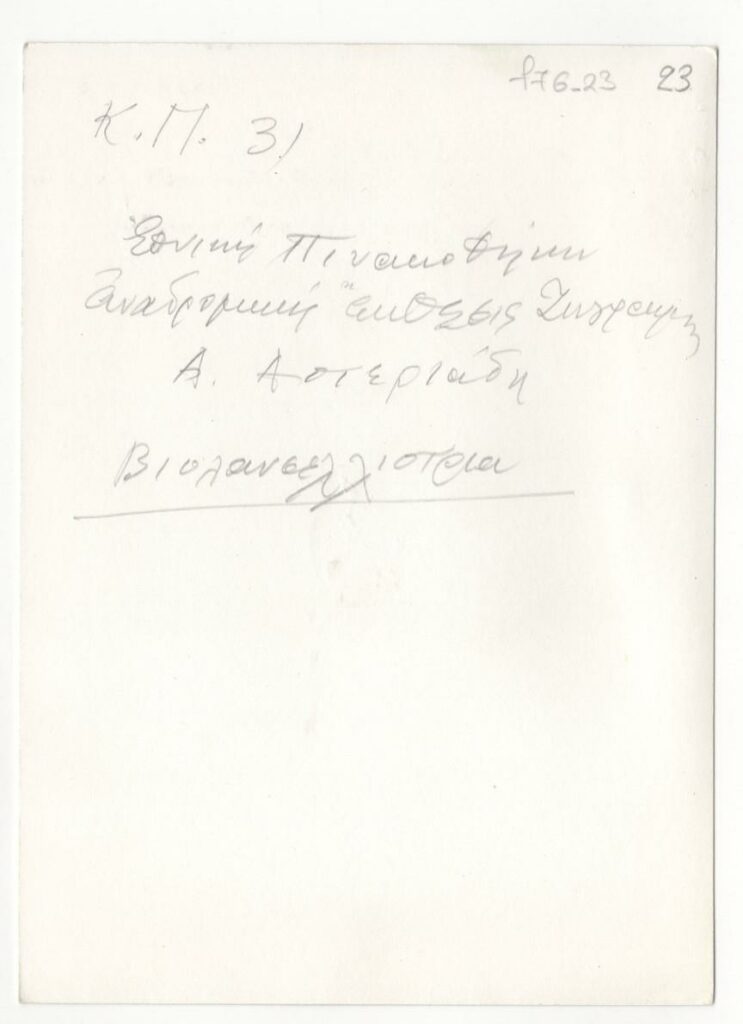 f76-23 23
Κ.Π. 31
Ἐθνική Πινακοθήκη
Ἀναδρομική Ἔκθεσις Ζωγραφικῆς
Α. Αστεριάδη
Βιολανσελλίστρια